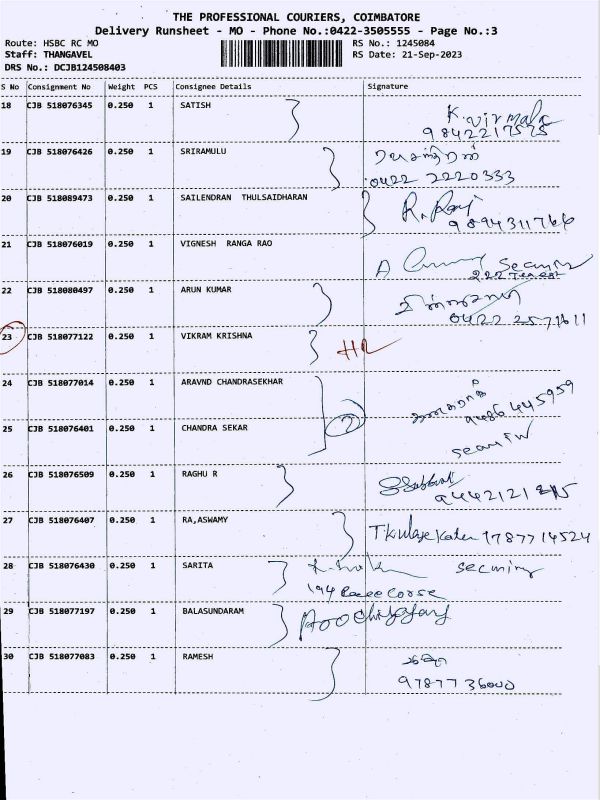 THE PROFESSIONAL COURIERS, COIMBATORE
Delivery Runsheet - MO - Phone No.:0422-3505555 - Page No.:3
Route: HSBC RC MO
RS No.: 1245084
Staff: THANGAVEL
RS Date: 21-Sep-2023
DRS No.: DCJB124508403
S No Consignment No Weight PCS Consignee Details Signature
18 CJB 518076345 0.250 1 SATISH K. Virmala
19 CJB 518076426 0.250 1 SRIRAMULU
0422 2220333
20 CJB 518089473 0.250 1 SAILENDRAN THULSAIDHARAN R. Raj
9894311766
21 CJB 518076019 0.250 1 VIGNESH RANGA RAO
22 CJB 518080497 0.250 1 ARUN KUMAR
0422 2571611
23 CJB 518077122 0.250 1 VIKRAM KRISHNA
24 CJB 518077014 0.250 1 ARAVND CHANDRASEKHAR
9486445959
25 CJB 518076401 0.250 1 CHANDRA SEKAR
26 CJB 518076509 0.250 1 RAGHU R
27 CJB 518076407 0.250 1 RA,ASWAMY
28 CJB 518076430 0.250 1 SARITA
194 Race Corse
29 CJB 518077197 0.250 1 BALASUNDARAM
30 CJB 518077083 0.250 1 RAMESH
97877 36000